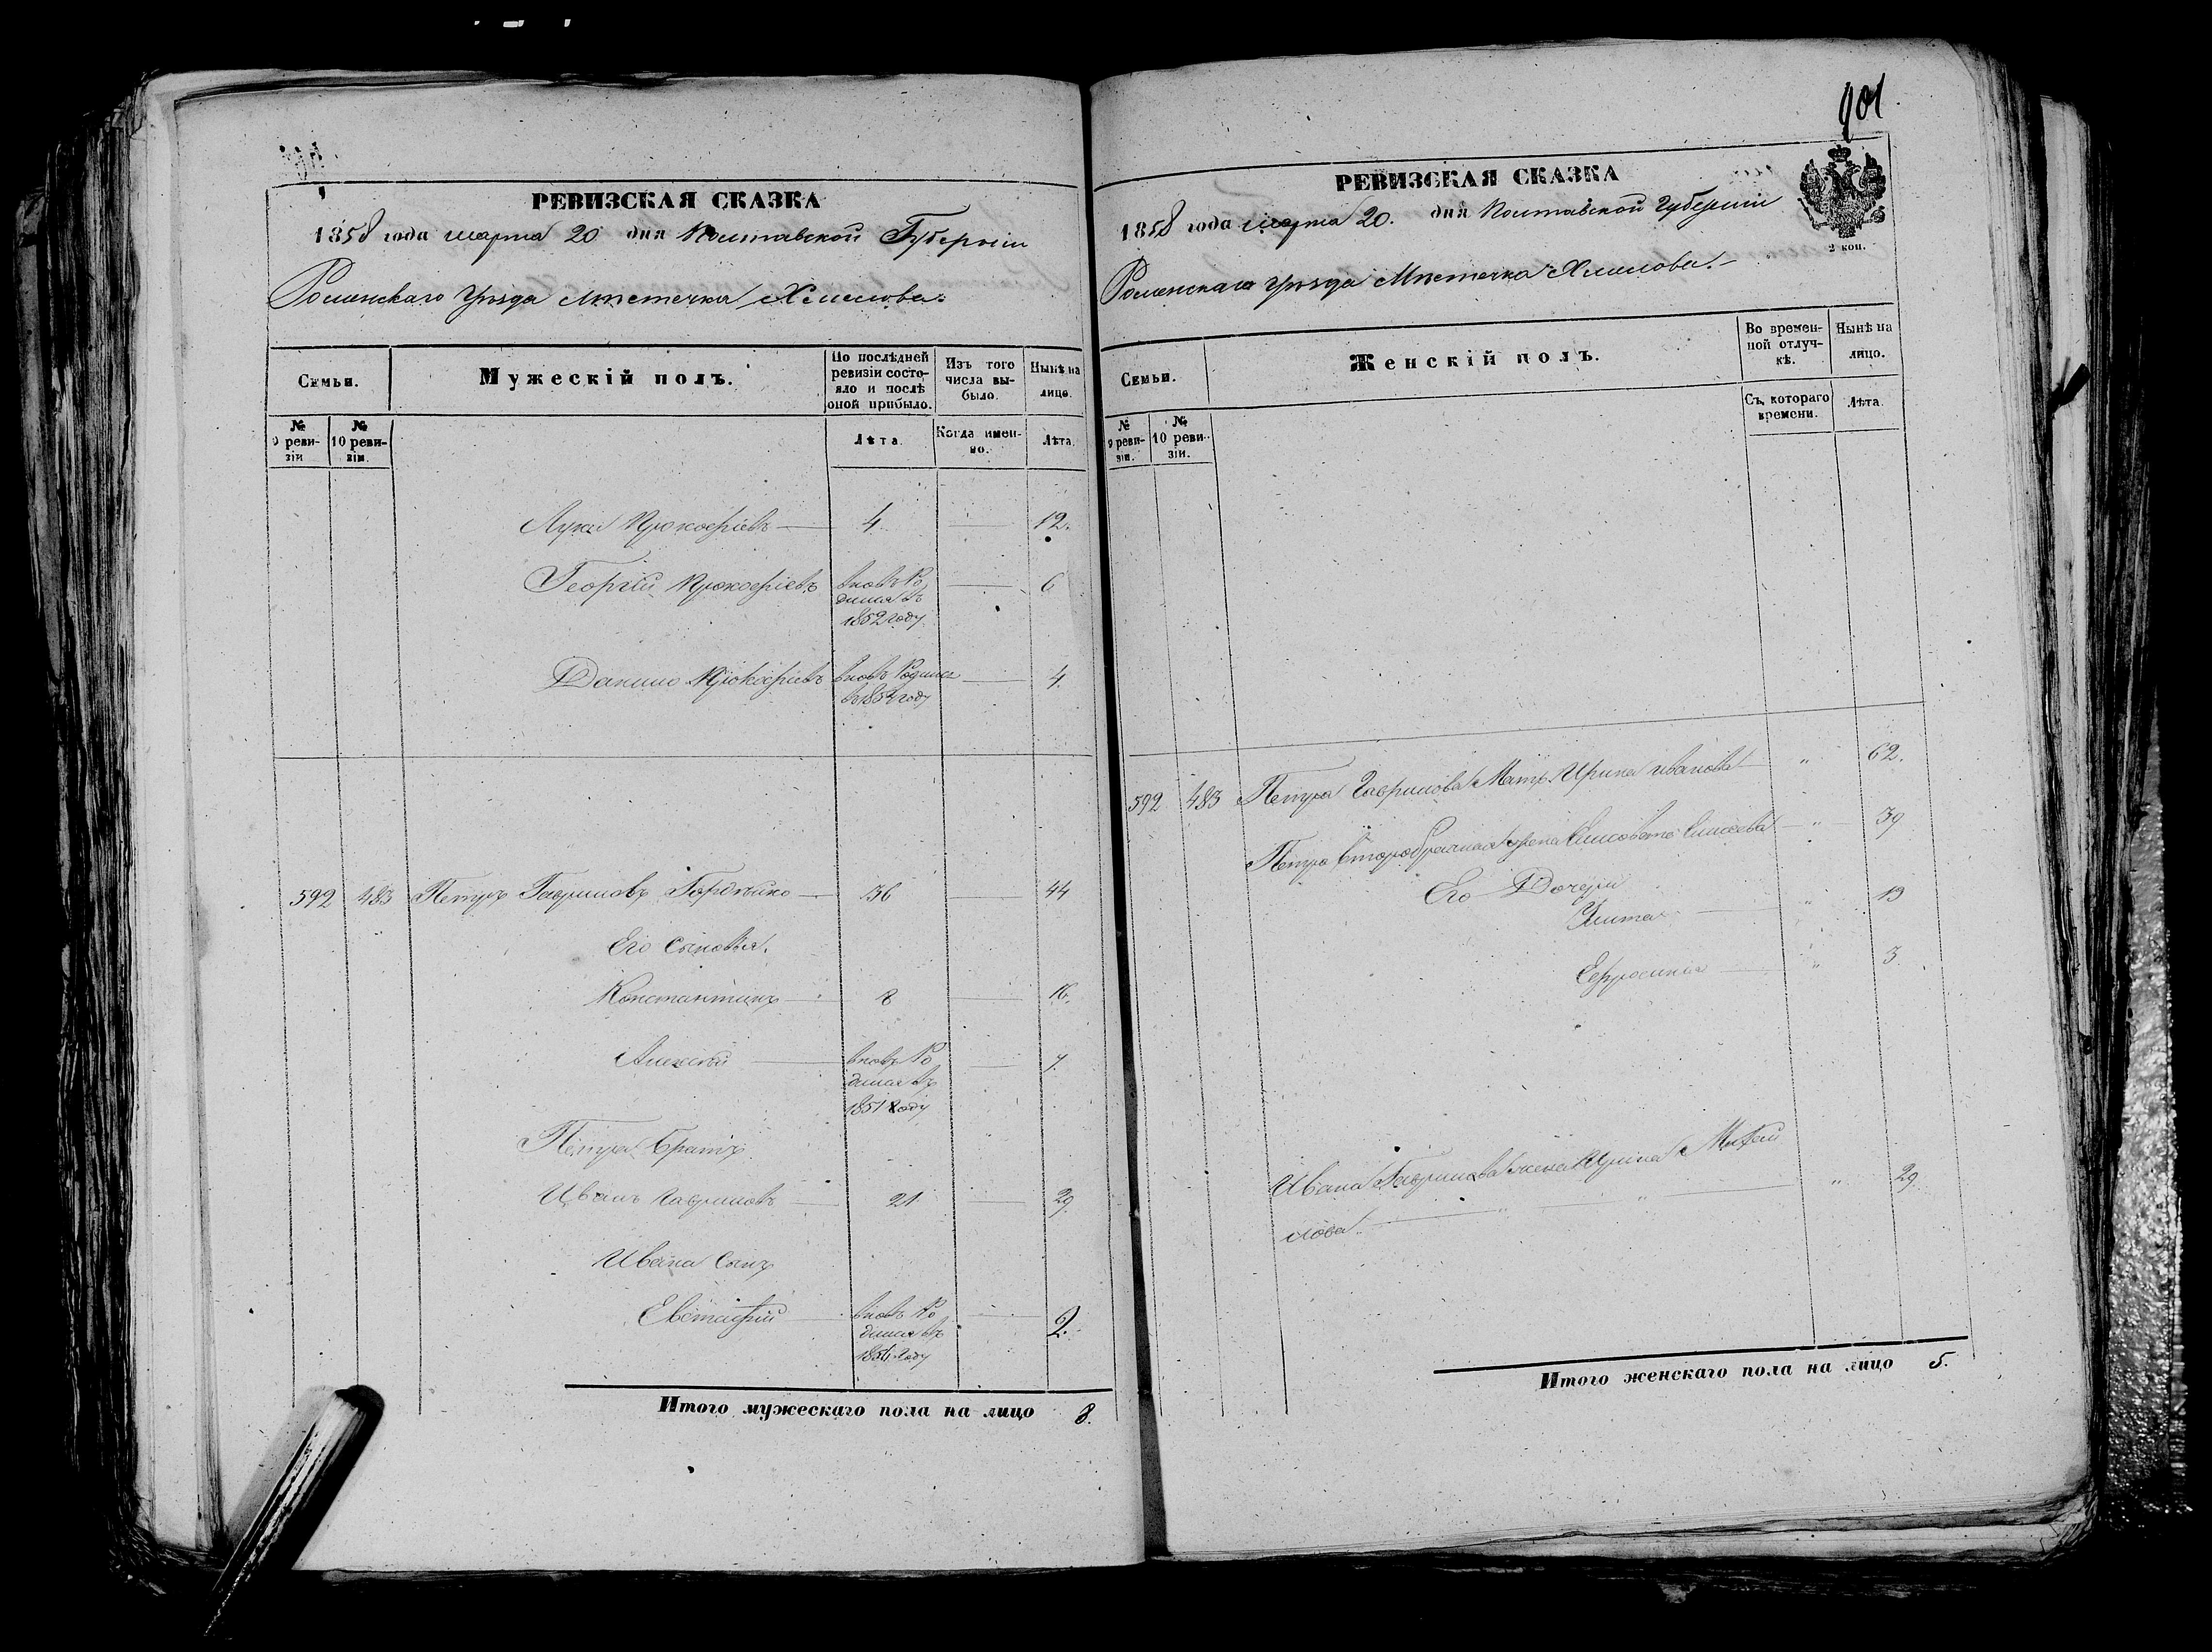 РЕВИЗСКАЯ СКАЗКА
1858 года марта 20 дня Полтавской Губерніи
Роменскаго Уѣзда Мѣстечка Хмелова.
Семьи.
Мужескій полъ.
По послѣдней ревизіи состояло и послѣ оной прибыло.
Изъ того числа выбыло.
Нынѣ на лицо.
№ 9 ревизіи
№ 10 ревизіи.
Лѣта.
Когда именно.
Лѣта.
Лука Прокофіевъ 4 12.
Георгій Прокофіевъ вновь Ро 6
дился въ
1852 году
Данило Прокофіевъ вновь Родился 4.
въ 1854 году
592 483 Петръ Гавриловъ 36 44
Его Сыновья.
Константинъ 8 16.
Алексѣй вновь Ро 7.
дился въ
1851 году
Петра Братъ
Иванъ Гавриловъ 21 29.
Ивана Сынъ
Евстафій вновь Ро 2.
дился въ
году
Итого мужескаго пола на лицо 8.
901
РЕВИЗСКАЯ СКАЗКА
1858 года марта 20. дня Полтавской Губерніи
2 коп.
Роменскаго Уѣзда Мѣстечка Хмелова.
Семьи.
Женскій полъ.
Во временной отлучкѣ.
Нынѣ на лицо.
№ 9 ревизіи.
№ 10 ревизіи.
Съ котораго времени.
Лѣта.
592 483 Петра Гаврилова Мать Ирина Иванова " 62.
Петра второбрачная жена Елисавета Елисеева " 39
Его Дочери
Улита " 19
Ефросинья " 3.
Ивана Гаврилова жена Ирина Михай
лова " " " 29.
Итого женскаго пола на лицо 5.